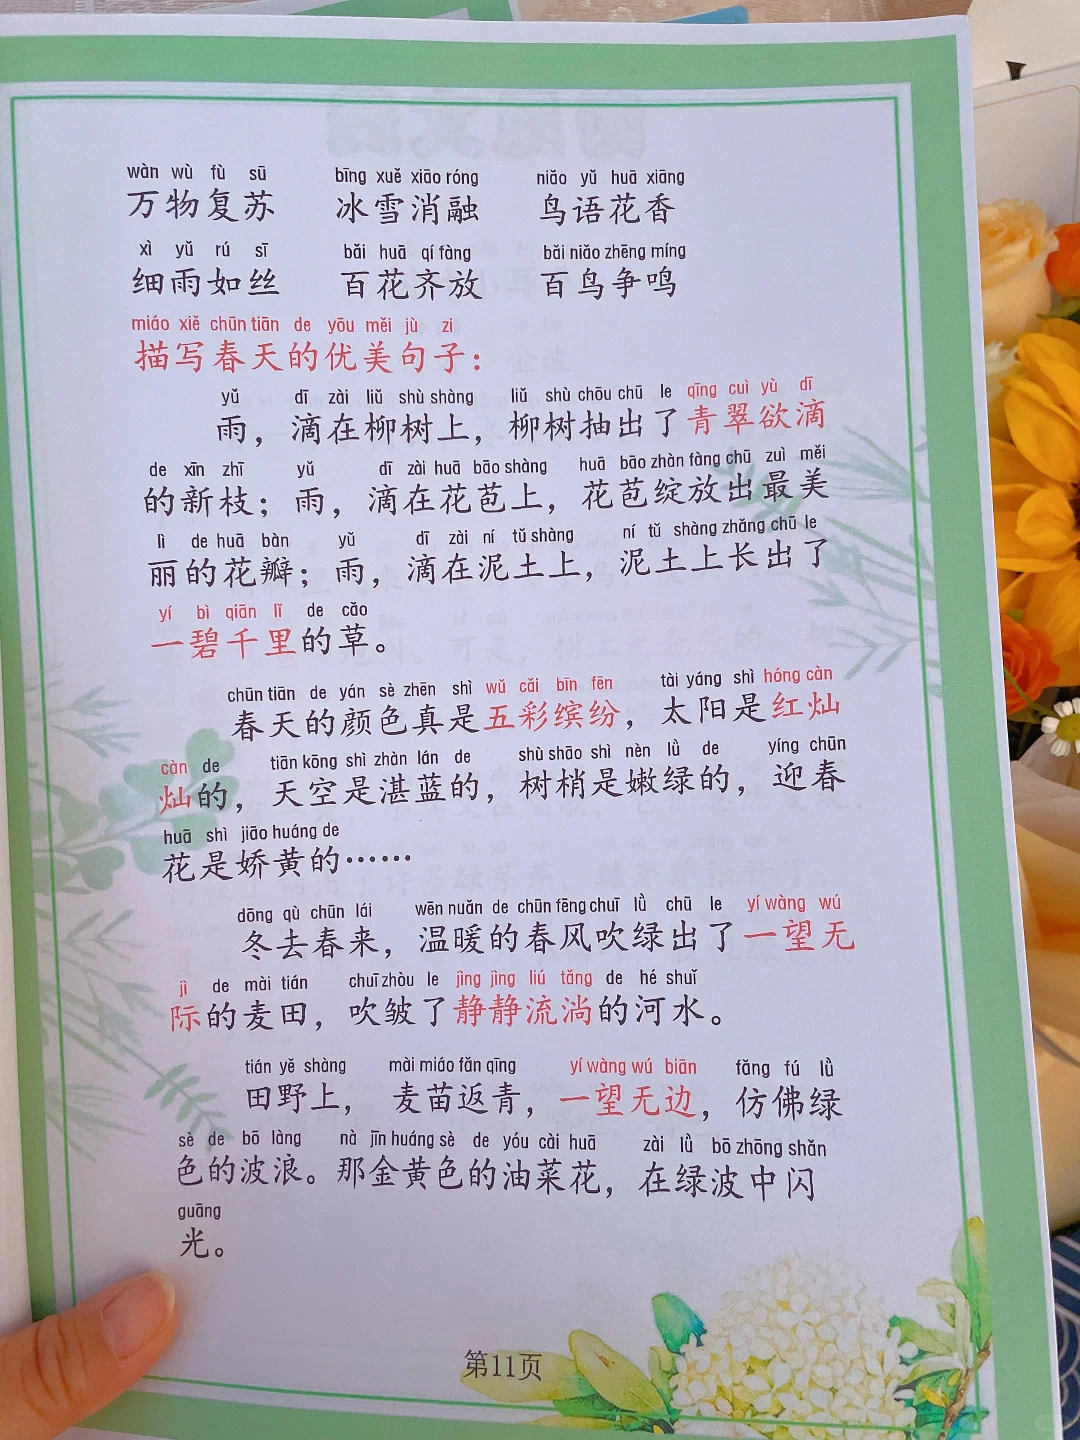 wàn wù fù sū bīng xuě xiāo róng niǎo yǔ huā xiāng
万物复苏 冰雪消融 鸟语花香
xì yǔ rú sī bǎi huā qí fàng bǎi niǎo zhēng míng
细雨如丝 百花齐放 百鸟争鸣
miáo xiě chūn tiān de yōu měi jù zi
描写春天的优美句子：
yǔ dī zài liǔ shù shàng liǔ shù chōu chū le qīng cuì yù dī
雨，滴在柳树上，柳树抽出了青翠欲滴
de xīn zhī yǔ dī zài huā bāo shàng huā bāo zhàn fàng chū zuì měi
的新枝；雨，滴在花苞上，花苞绽放出最美
lì de huā bàn yǔ dī zài ní tǔ shàng ní tǔ shàng zhǎng chū le
丽的花瓣；雨，滴在泥土上，泥土上长出了
yí bì qiān lǐ de cǎo
一碧千里的草。
chūn tiān de yán sè zhēn shì wǔ cǎi bīn fēn tài yáng shì hóng càn
春天的颜色真是五彩缤纷，太阳是红灿
càn de tiān kōng shì zhàn lán de shù shāo shì nèn lǜ de yíng chūn
灿的，天空是湛蓝的，树梢是嫩绿的，迎春
huā shì jiāo huáng de
花是娇黄的……
dōng qù chūn lái wēn nuǎn de chūn fēng chuī lǜ chū le yí wàng wú
冬去春来，温暖的春风吹绿出了一望无
jì de mài tián chuī zhòu le jìng jìng liú tǎng de hé shuǐ
际的麦田，吹皱了静静流淌的河水。
tián yě shàng mài miáo fǎn qīng yí wàng wú biān fǎng fú lǜ
田野上，麦苗返青，一望无边，仿佛绿
sè de bō làng nà jīn huáng sè de yóu cài huā zài lǜ bō zhōng shǎn
色的波浪。那金黄色的油菜花，在绿波中闪
guāng
光。
第11页